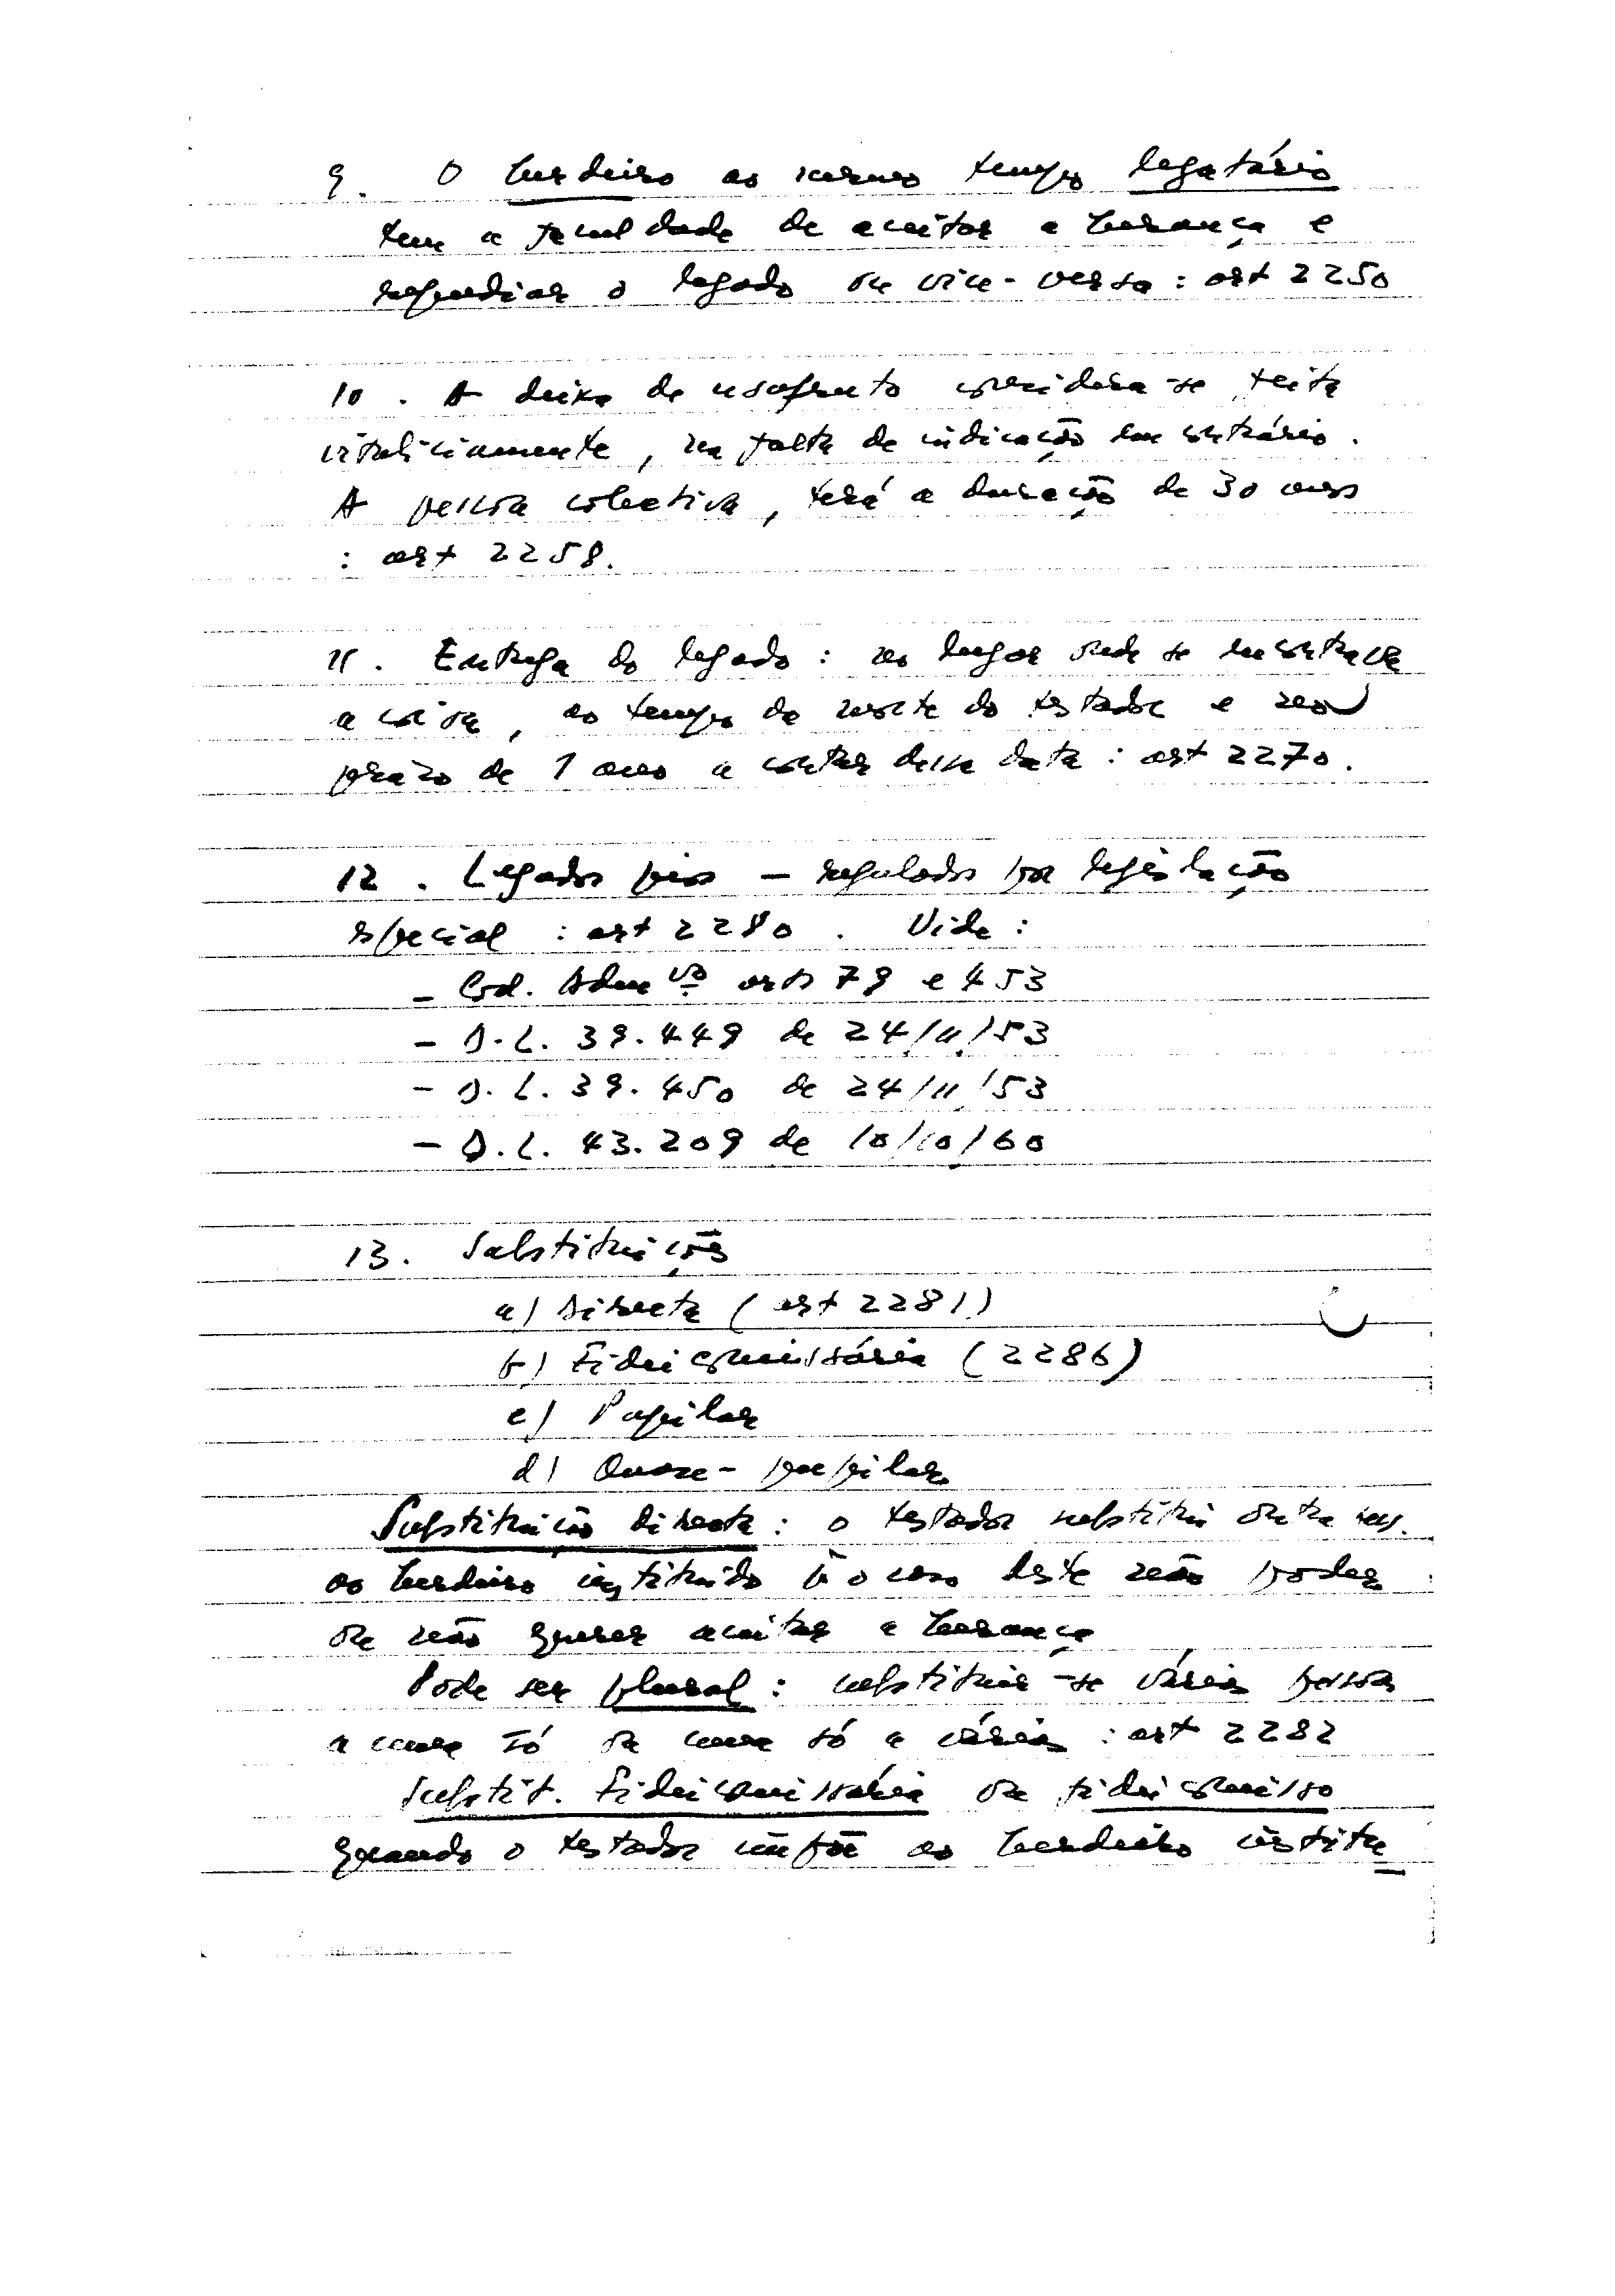 9. O herdeiro ao mesmo tempo legatário
tem a faculdade de aceitar a herança e
repudiar o legado ou vice-versa : art 2250
10. A deixa de usofruto considera-se feita
vitaliciamente, na falta de indicação em contrário.
A pessoa colectiva, terá a duração de 30 anos
: art 2258.
11. Entrega do legado : no lugar onde se encontrava
a coisa, ao tempo da morte do testador e no
prazo de 1 ano a contar dessa data : art 2270.
12. Legados pios — regulados por legislação
especial : art 2280. Vide :
- Cod. Admvo arts 79 e 453
- D.L. 39.449 de 24/11/53
- D.L. 39.450 de 24/11/53
- D.L. 43.209 de 10/10/60
13. Substituições
a) Directa (art 2281)
b) Fideicomissária (2286)
c) Pupilar
d) Quase-pupilar
Substituição directa : o testador substitui outra pes.
ao herdeiro instituido p/ o caso deste não poder
ou não querer aceitar a herança
Pode ser plural : substituir-se várias pessoas
a uma só ou uma só a várias : art 2282
Substit. Fideicomissária ou fideicomisso
quando o testador impõe ao herdeiro institu